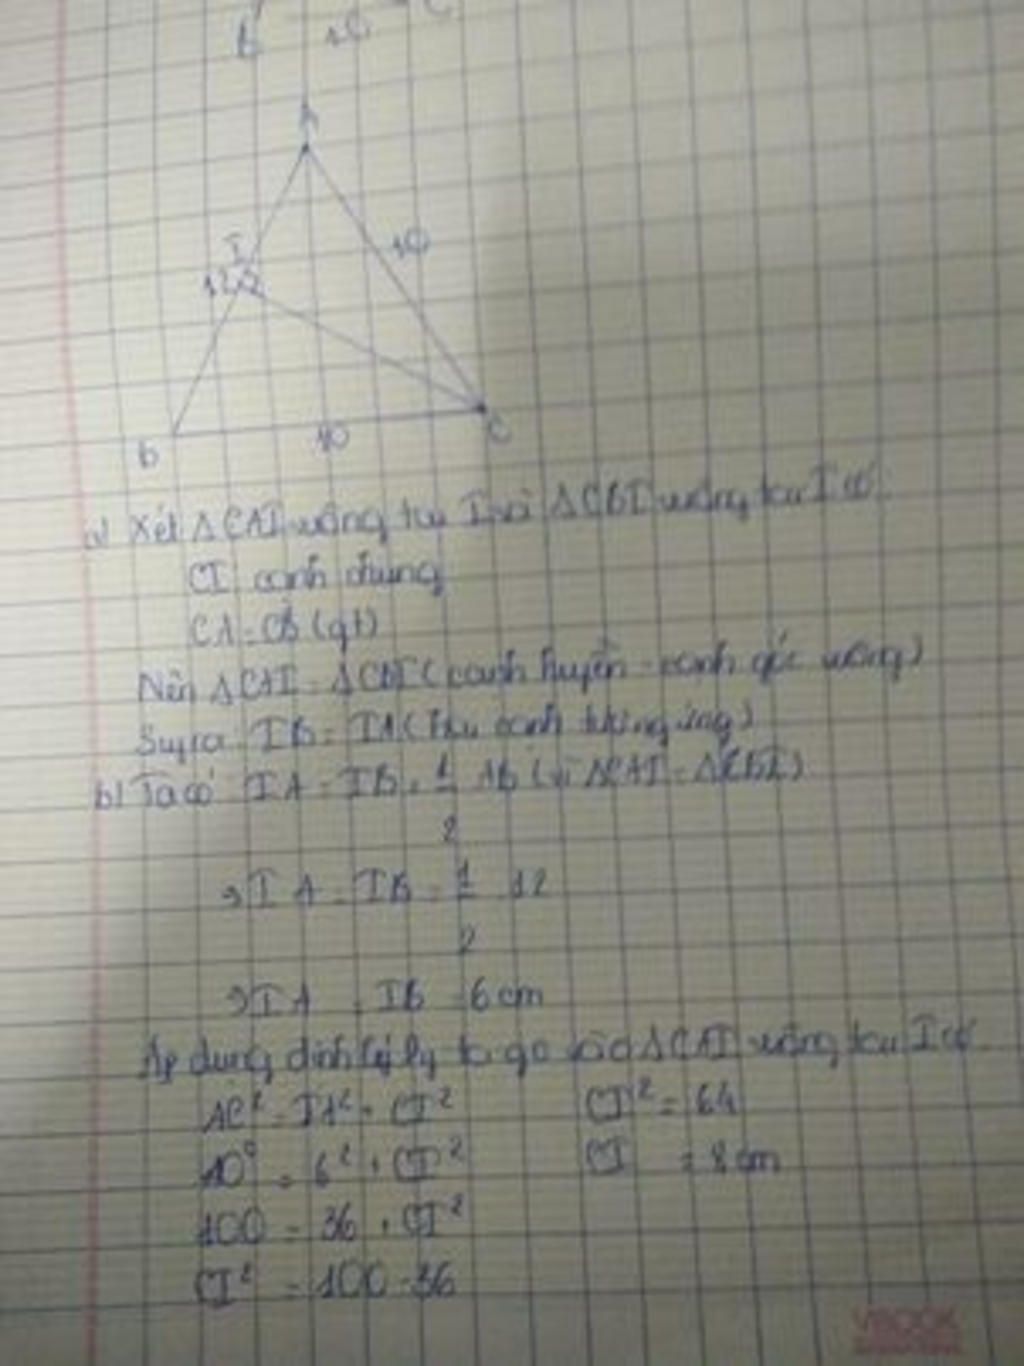 A
I
10
12
B
10
C
a) Xét ΔCAI vuông tại I và ΔCBI vuông tại I có
CI cạnh chung
CA = CB (gt)
Nên ΔCAI = ΔCBI (cạnh huyền - cạnh góc vuông)
Suy ra IB = IA (hai cạnh tương ứng)
b) Ta có IA = IB = 1/2 AB (vì ΔCAI = ΔCBI)
⇒ IA = IB = 1/2 12
⇒ IA = IB = 6 cm
Áp dụng định lý Py ta go vào ΔCAI vuông tại I có
AC² = IA² + CI² CI² = 64
10² = 6² + CI² CI = 8 cm
100 = 36 + CI²
CI² = 100 - 36
VIBOOK